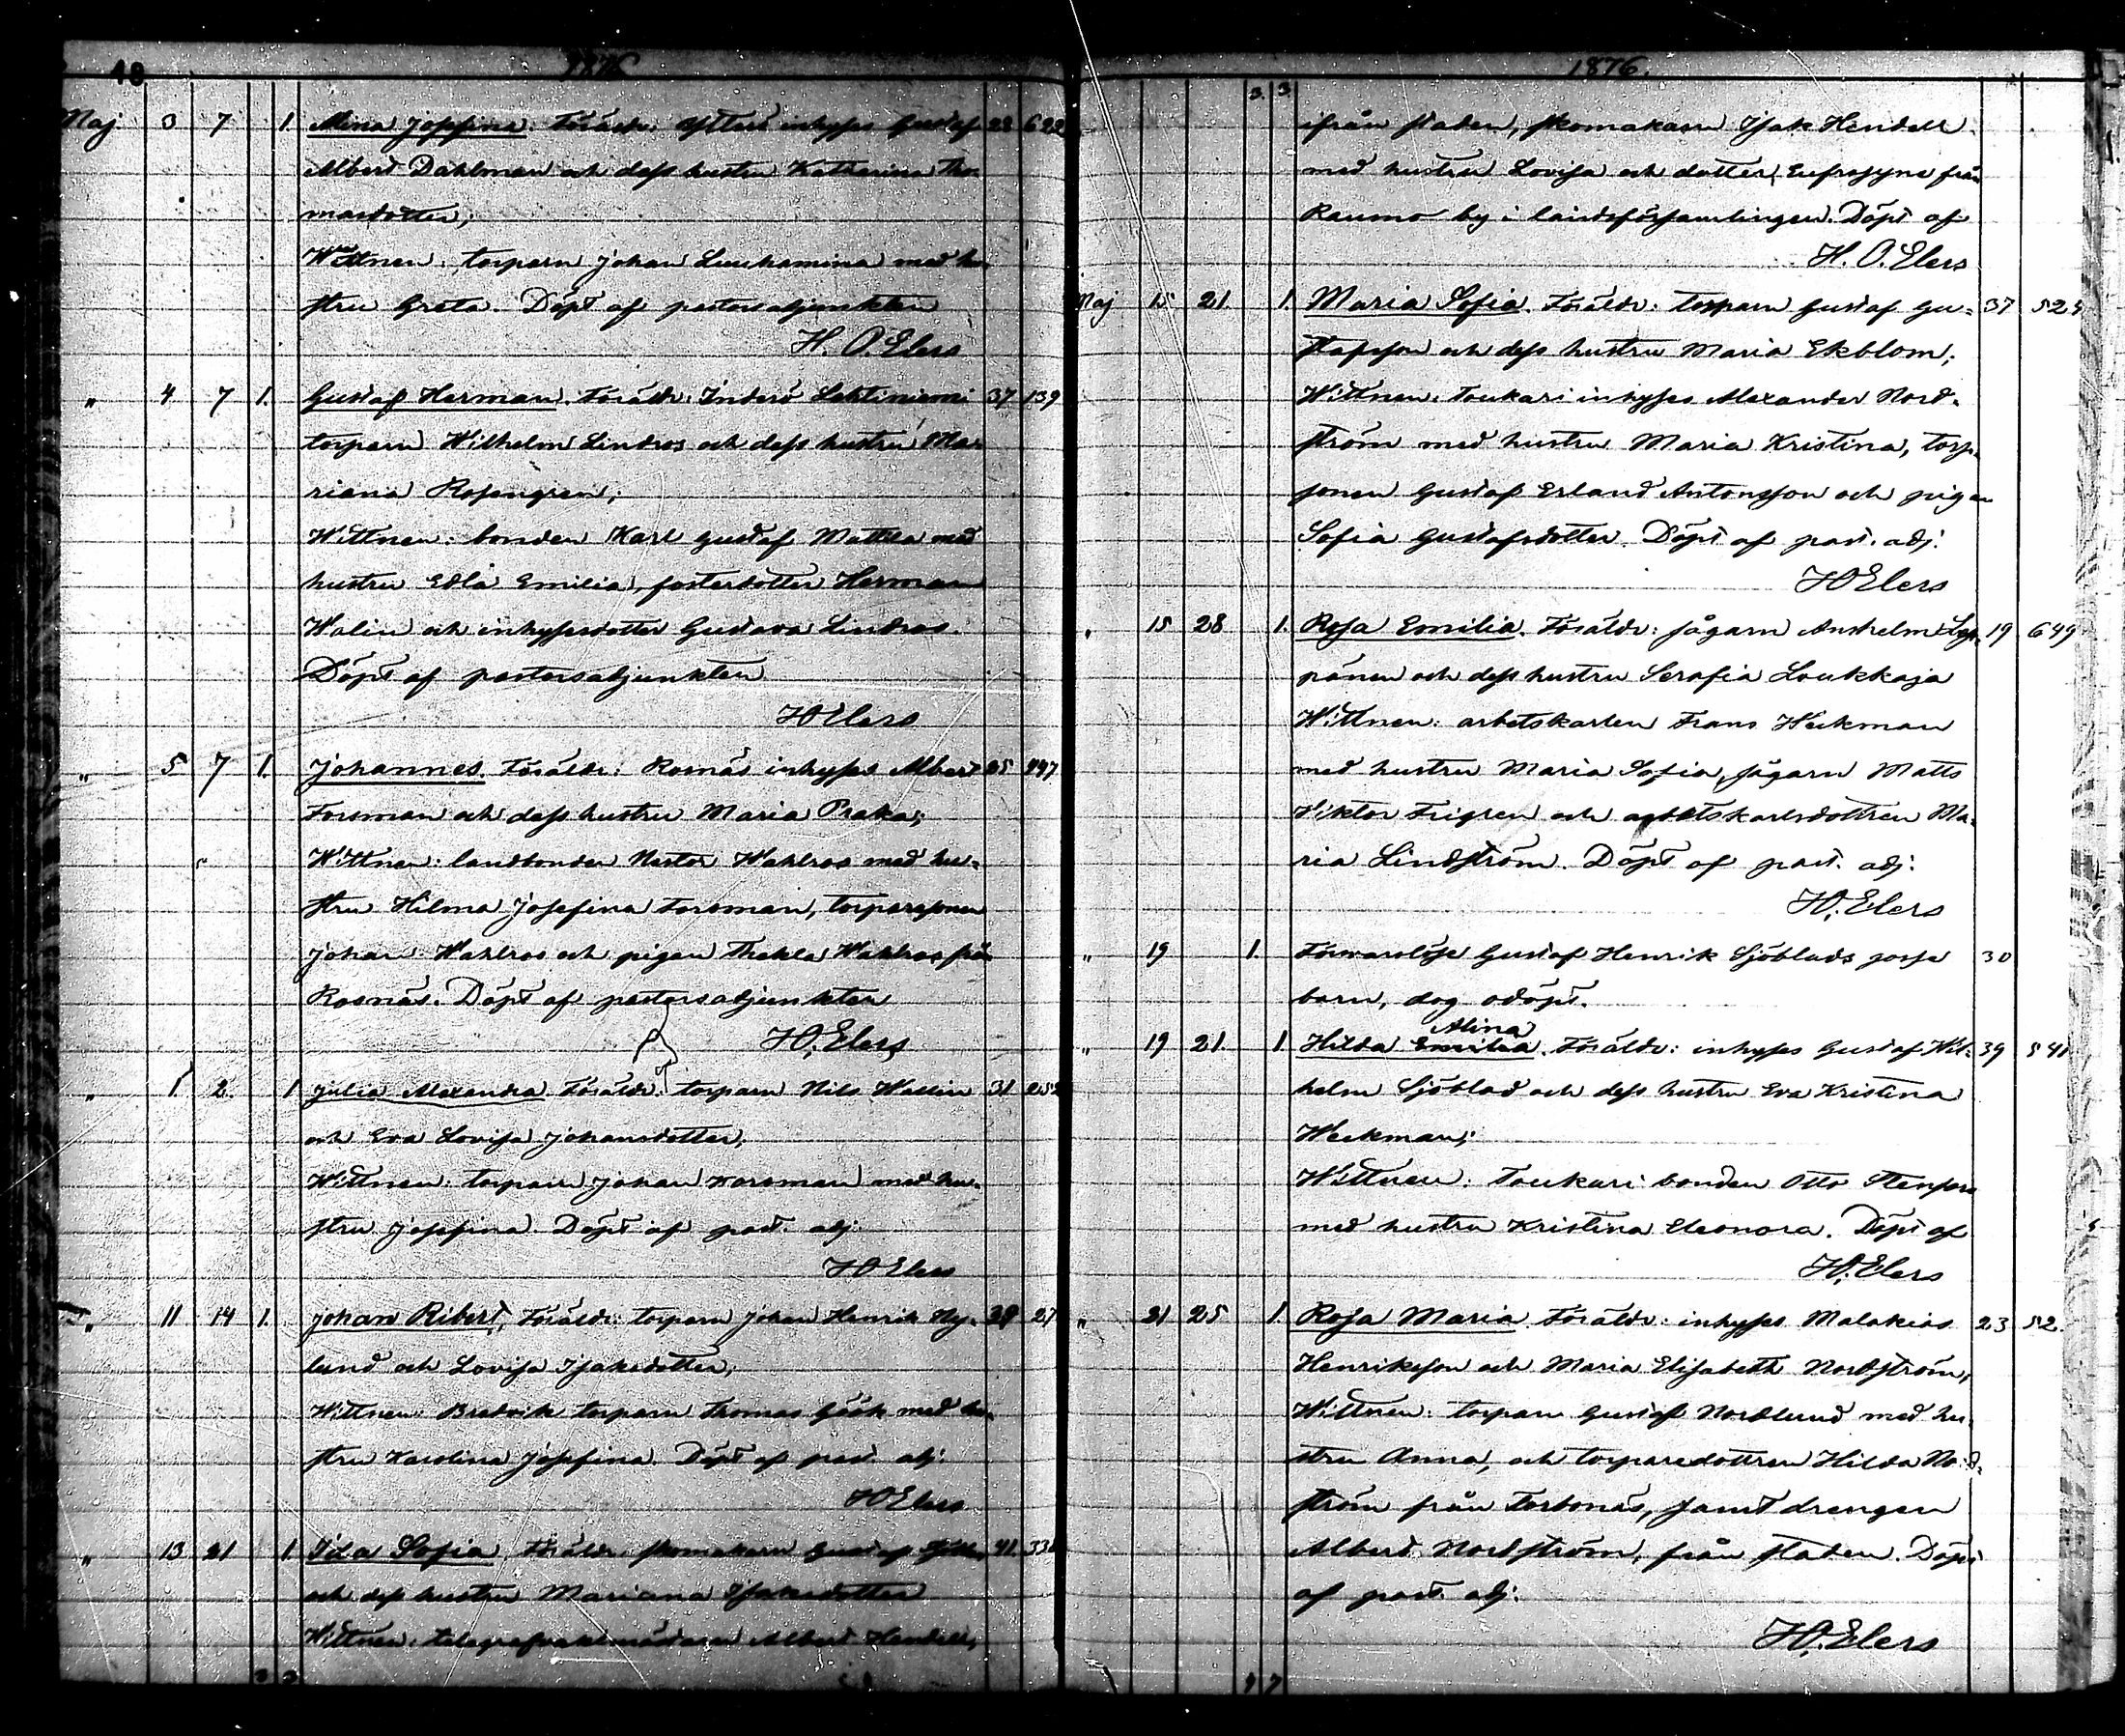 18 1876
Maj 3 7 1. Alina Josefina. Föräldr: inhyses Gustaf 28 622
Albert Dahlman och dess hustru Katharina Tho-
masdotter;
Wittnen: torparn Johan Luukamina med hu-
stru Greta. Döpt af pastorsadjunkten
H. O. Elers
" 4 7 1. Gustaf Herman. Föräldr: Inderö Lehtiniemi 37 139
torparn Wilhelm Lindros och dess hustru Ma-
riana Rosengren;
Wittnen: bonden Karl Gustaf Mattila med
hustru Edla Emilia, Herman
Walin och inhysesdotter Gustava Lindros.
Döpt af pastorsadjunkten
HOElers
" 5 7 1. Johannes. Föräldr: Rosnäs inhyses Albert 25 447
Forsman och dess hustru Maria Praka;
Wittnen: landbonden Nestor Wahlros med hu-
stru Hilma Josefina Forsman, torparesonen
Johan Wahlros och pigan Thekla Wahlros från
Rosnäs. Döpt af pastorsadjunkten
H.O. Elers
" 1 2. 1 Julia Alexandra. Föräldr: torparn Nils Wallin 31 252
och Eva Lovisa Johansdotter;
Wittnen: torparn Johan Forsman med hu-
stru Josefina. Döpt af past. adj.
HO Elers
" 11 14 1. Johan Ribert. Föräldr: torparn Johan Henrik Ny- 29 27
lund och Lovisa Isaksdotter;
Wittnen: Bredvik torparn Thomas Göök med hu-
stru Karolina Josefina. Döpt af past. adj.
HOElers
" 13 21 1. Ida Sofia. Föräldr: skomakarn Gustaf 41. 331
och dess hustru Mariana Isaksdotter
Wittnen: telegrafvaktmästarn Albert Hendell,
1876.
3. 3.
ifrån staden, skomakarn Isak Hendell
med hustru Lovisa och dotter Eufrosyne från
Raumo by i landsförsamlingen. Döpt af
H. O. Elers
Maj 15 21. 1. Maria Sofia. Föräldr: torparn Gustaf Gu- 37 524
stafsson och dess hustru Maria Ekblom;
Wittnen: Toukari inhyses Alexander Nord-
ström med hustru Maria Kristina, torp.
sonen Gustaf Erland Antonsson och pigan
Sofia Gustafsdotter. Döpt af past. adj.
HOElers
" 15 28 1. Rosa Emilia. Föräldr: sågarn Anshelm Lep- 19 649
pänen och dess hustru Serafia Loukkaja
Wittnen: arbetskarlen Frans Weckman
med hustru Maria Sofia, sågarn Matts
Viktor Frigren och arbetskarlsdottren Ma-
ria Lindström. Döpt af past. adj.
H.O. Elers
" 19 1. Förswarslöse Gustaf Henrik Sjöblads gosse 30
barn, dog odöpt.
Alina
" 19 21. 1 Hilda Emilia. Föräldr: inhyses Gustaf Wil- 39 541
helm Sjöblad och dess hustru Eva Kristina
Weckman;
Wittnen: Toukari bonden Otto Stenfors
med hustru Kristina Eleonora. Döpt af
H.O. Elers
" 21 25 1. Rosa Maria. Föräldr: inhyses Malakias 23 52.
Henriksson och Maria Elisabeth Nordström,
Wittnen: torparn Gustaf Nordlund med hu-
stru Anna, och torparedottren Hilda Nord-
ström från Torbonäs, samt drengen
Albert Nordström, från staden. Döpt
af past. adj:
H.O. Elers
9 7